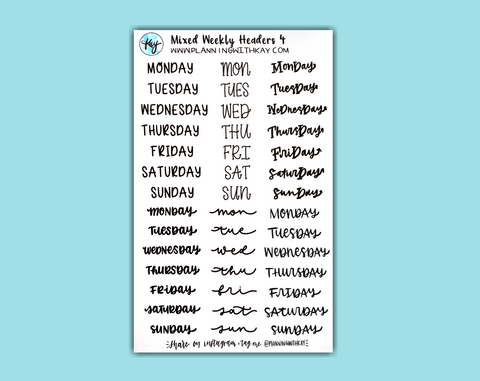 Kay
Mixed Weekly Headers 4
WWW.PLANNINGWITHKAY.COM
MONDAY MON MonDay
TUESDAY TUES TuesDay
WEDNESDAY WED WeDnesDay
THURSDAY THU ThursDay
FRIDAY FRI FriDay
SATURDAY SAT SaturDay
SUNDAY SUN SunDay
MONDAY mon MONDAY
TUESDAY tue TUESDAY
WEDNESDAY wed WEDNESDAY
THURSDAY thu THURSDAY
FRIDAY fri FRIDAY
SATURDAY sat SATURDAY
SUNDAY sun SUNDAY
Share on instagram + tag me @PLANNINGWITHKAY